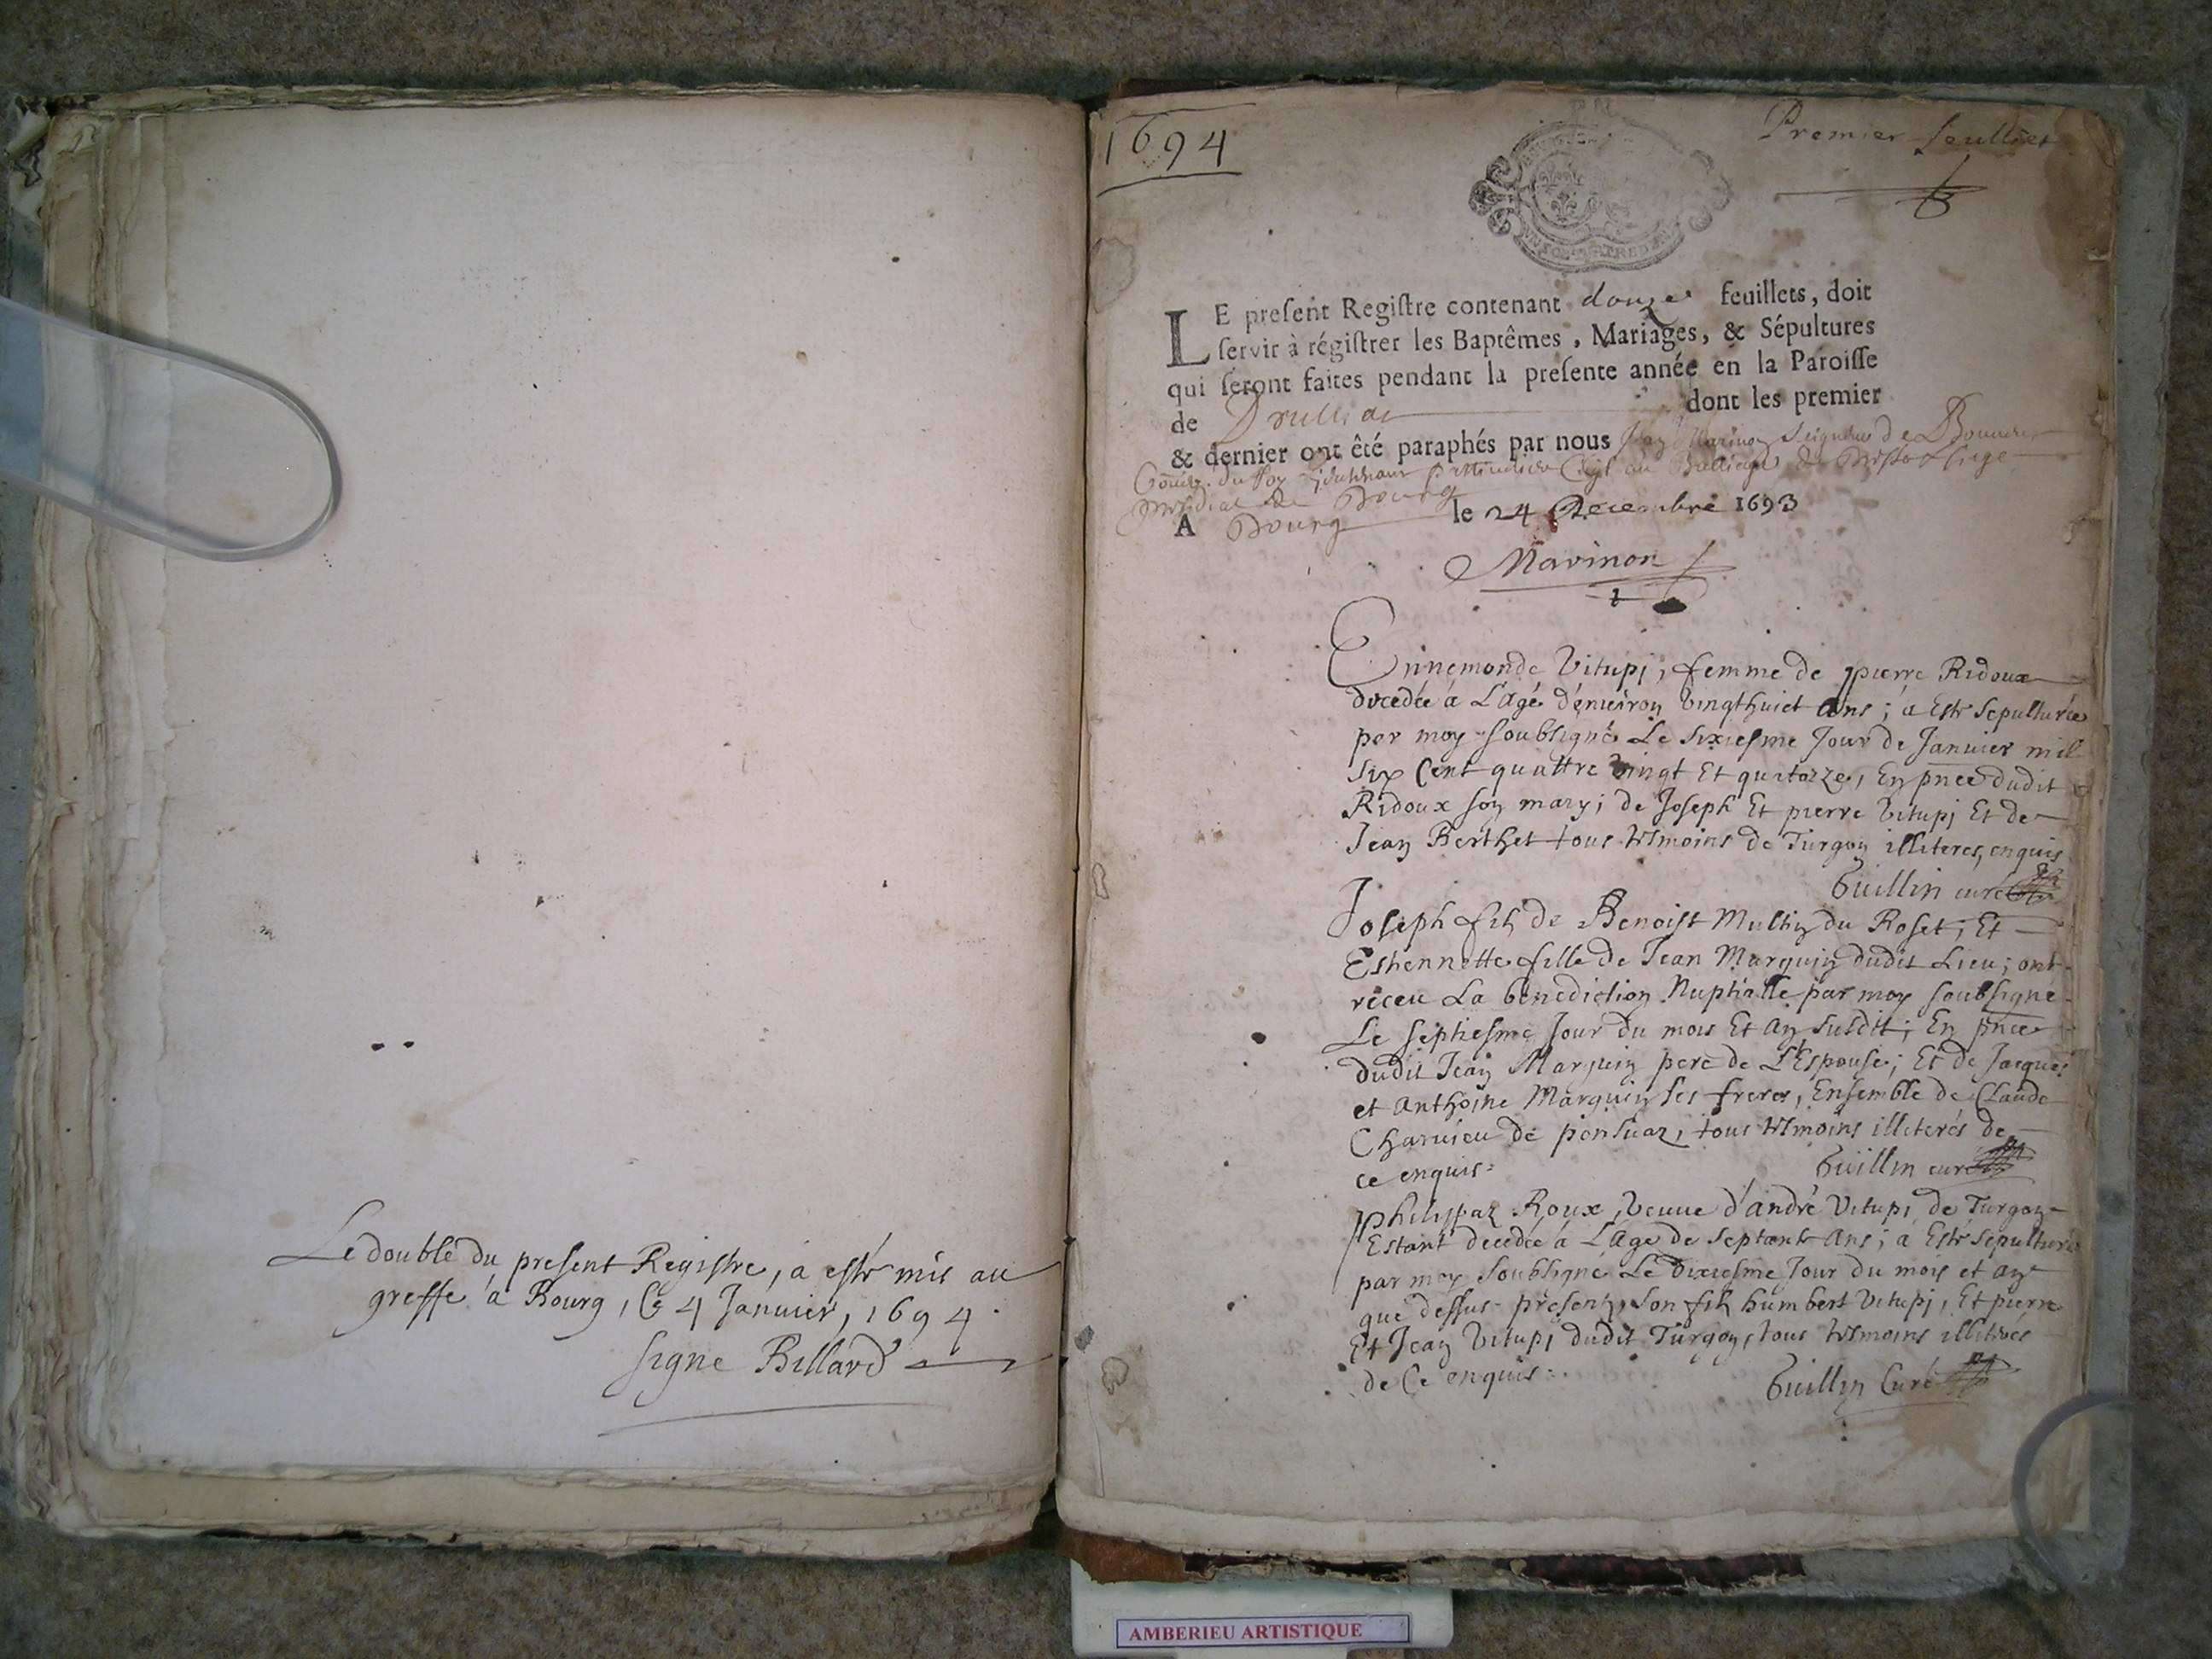 Le double du present Registre, a esté mis au
greffe à Bourg, le 4 Januier, 1694.
signe Billard
1694
Premier feulliet
LE present Registre contenant douze feuillets, doit
servir à régistrer les Baptêmes, Mariages, & Sépultures
qui seront faites pendant la presente année en la Paroisse
de Drulliat dont les premier
& dernier ont êté paraphés par nous Marinon Seigneur de
Conser. du Roy Lieutenant particulier au Balliage de
presidial de Bourg
A Bourg le 24 Decembre 1693
Marinon
Ennemonde Vitupj, femme de pierre Ridoux
decedée à L'age d'enuiron vingthuict ans; a Esté sepulturée
par moy soubsigné Le sixiesme Jour de Januier mil
six Cent quattre vingt Et quatozze, En pnce dudit
Ridoux son mary; de Joseph Et pierre Vitupj Et de
Jean Berthet tous tesmoins de Turgon illiteres, enquis
Guillin curé
Joseph fils de Benoist Multin du Roset, Et
Estiennette fille de Jean Marquin dudit Lieu; ont
receu La benediction Nuptialle par moy soubsigné
Le septiesme Jour du mois Et an susdit; En pnce
dudit Jean Marquin pere de L'Espouse; Et de Jacques
et Anthoine Marquin ses freres, Ensemble de Claude
Charuieu de ponsuaz, tous tesmoins illiterés de
ce enquis.
Guillin curé
philippaz Roux, veuue d'andré Vitupj de Turgon
Estant decedée à L'age de septante Ans; a Esté sepulturée
par moy soubsigné Le dixiesme Jour du mois et an
que dessus presents, son fils humbert Vitupj, Et pierre
Et Jean Vitupj dudit Turgon, tous tesmoins illiterés
de Ce enquis.
Guillin Curé
AMBERIEU ARTISTIQUE